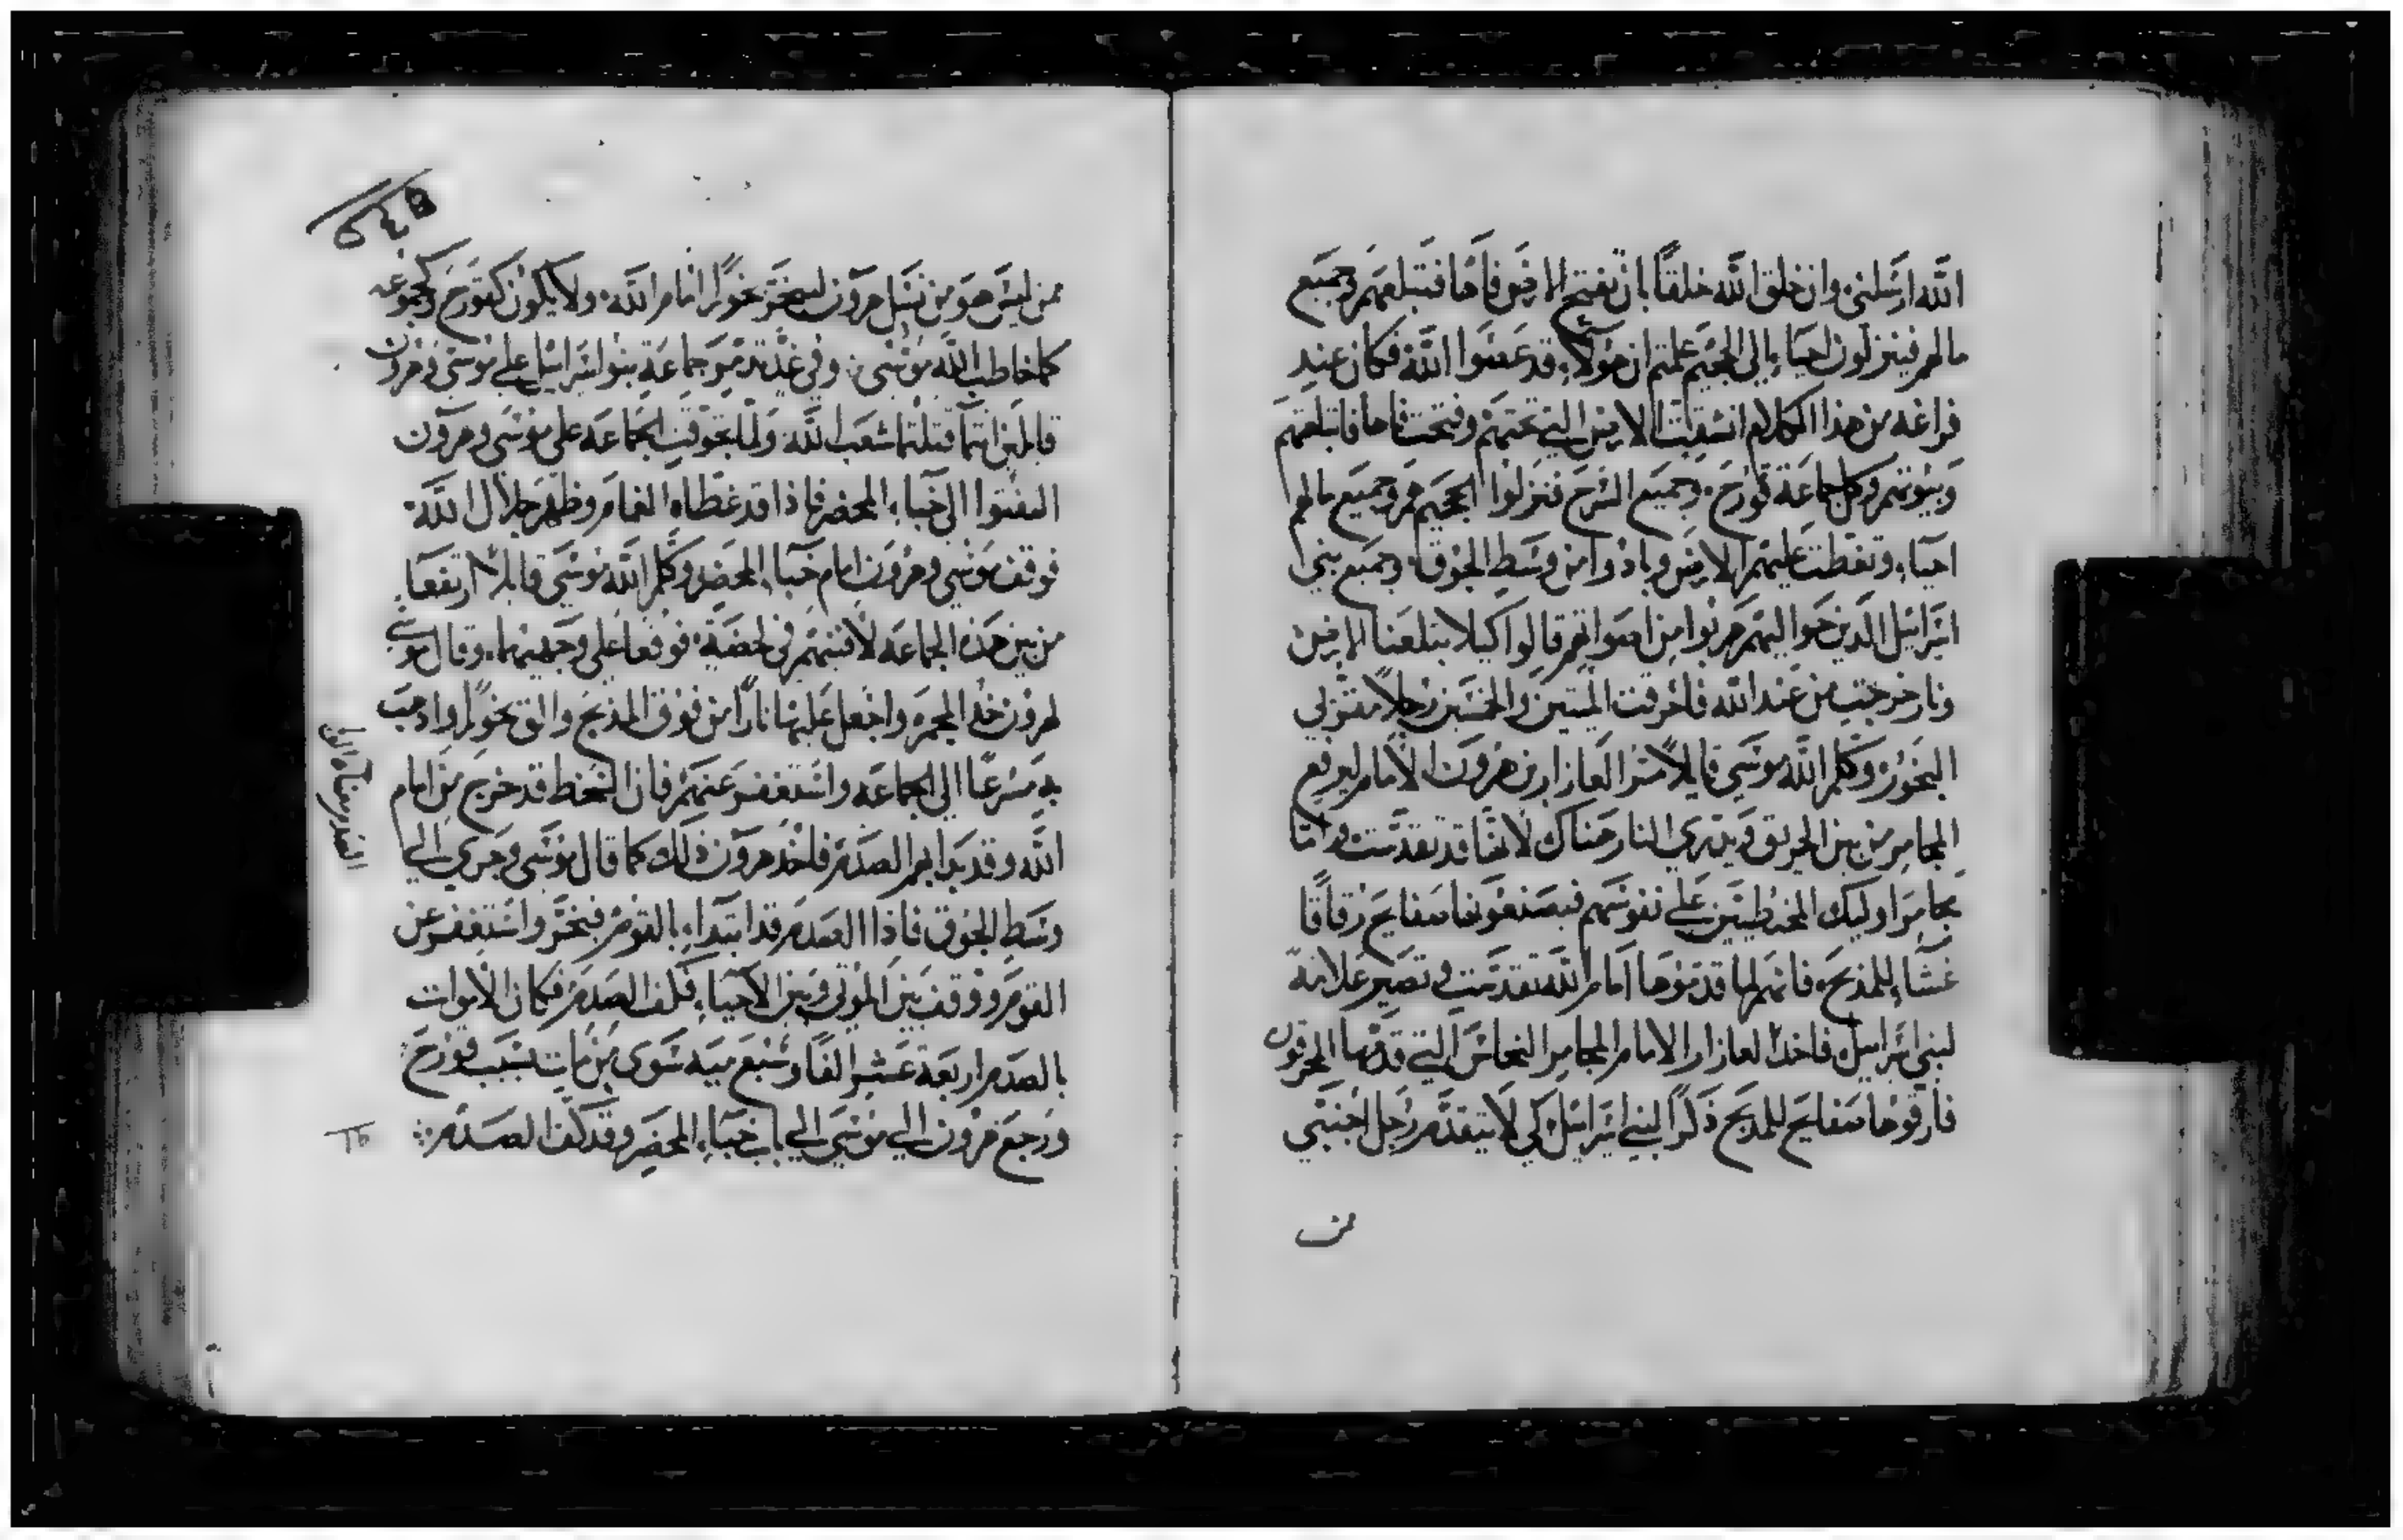 الله ارسلني وان خلق الله خلقًا بان تفتح الارض فاها فتبلعهم وجميع
مالهم فينزلون احياء الى الجحيم علمتم ان هولاء قد عصوا الله فكان عند
فراغه من هذا الكلام انشقت الارض التي تحتهم وفتحت فاها فابتلعتهم
وبيوتهم وكل جماعة قورح وجميع السرح فنزلوا الجحيم هم وجميع مالهم
احياء وتغطت عليهم الارض وبادوا من وسط الجوق وجميع بني
اسراييل الذين حواليهم هربوا من اصواتهم قالوا كيلا تبتلعنا الارض
ونار خرجت من عند الله فاحرقت الميتين والخمسين رجلاً مقربي
البخور وكلم الله موسى قايلاً مر العازار بن هرون الامام ليرفع
المجامر من بين الحريق ويذري النار هناك لانها قد تقدست واما
مجامر اوليك المخطيين على نفوسهم فيصنعونها صفايح رقاقًا
غشاء للمذبح فانهم لما قدموها امام الله تقدست وتصير علامة
لبني اسراييل فاخذ العازار الامام المجامر النحاس التي قدمها المحرقون
فارقوها صفايح للمذبح ذكرًا لبني اسراييل كي لا يتقدم رجل اجنبي
من
ممن ليس هو من نسل هرون ليبخر بخورًا امام الله ولا يكون كقورح وكجموعه
كما خاطب الله موسى وفي غد تذمر جماعة بنو اسراييل على موسى وهرون
قايلين انتما قتلتما شعب الله ولما تجوقت الجماعه على موسى وهرون
التفتوا الى خباء المحضر فاذا قد غطاه الغمام وظهر جلال الله
فوقف موسى وهرون امام خباء المحضر وكلم الله موسى قايلا ارتفعا
من بين هذه الجماعه لافنيهم في لحضة فوقعا على وجهيهما وقال موسى
لهرون خذ المجمره واجعل عليها نارًا من فوق المذبح والق بخورًا واذهب
به مسرعًا الى الجماعه واستغفر عنهم فان السخط قد خرج من امام
الله وقد بدا بهم الصدم فاخذ هرون ذلك كما قال موسى وجرى الى
وسط الجوق فاذا الصدم قد ابتداء بالقوم فبخر واستغفر عن
القوم ووقف بين الموتى وبين الاحياء فكف الصدم فكان الاموات
بالصدم اربعة عشر الفًا وسبع ميه سوى من مات بسبب قورح
ورجع هرون الى موسى الى باب خباء المحضر وقد كف الصدم